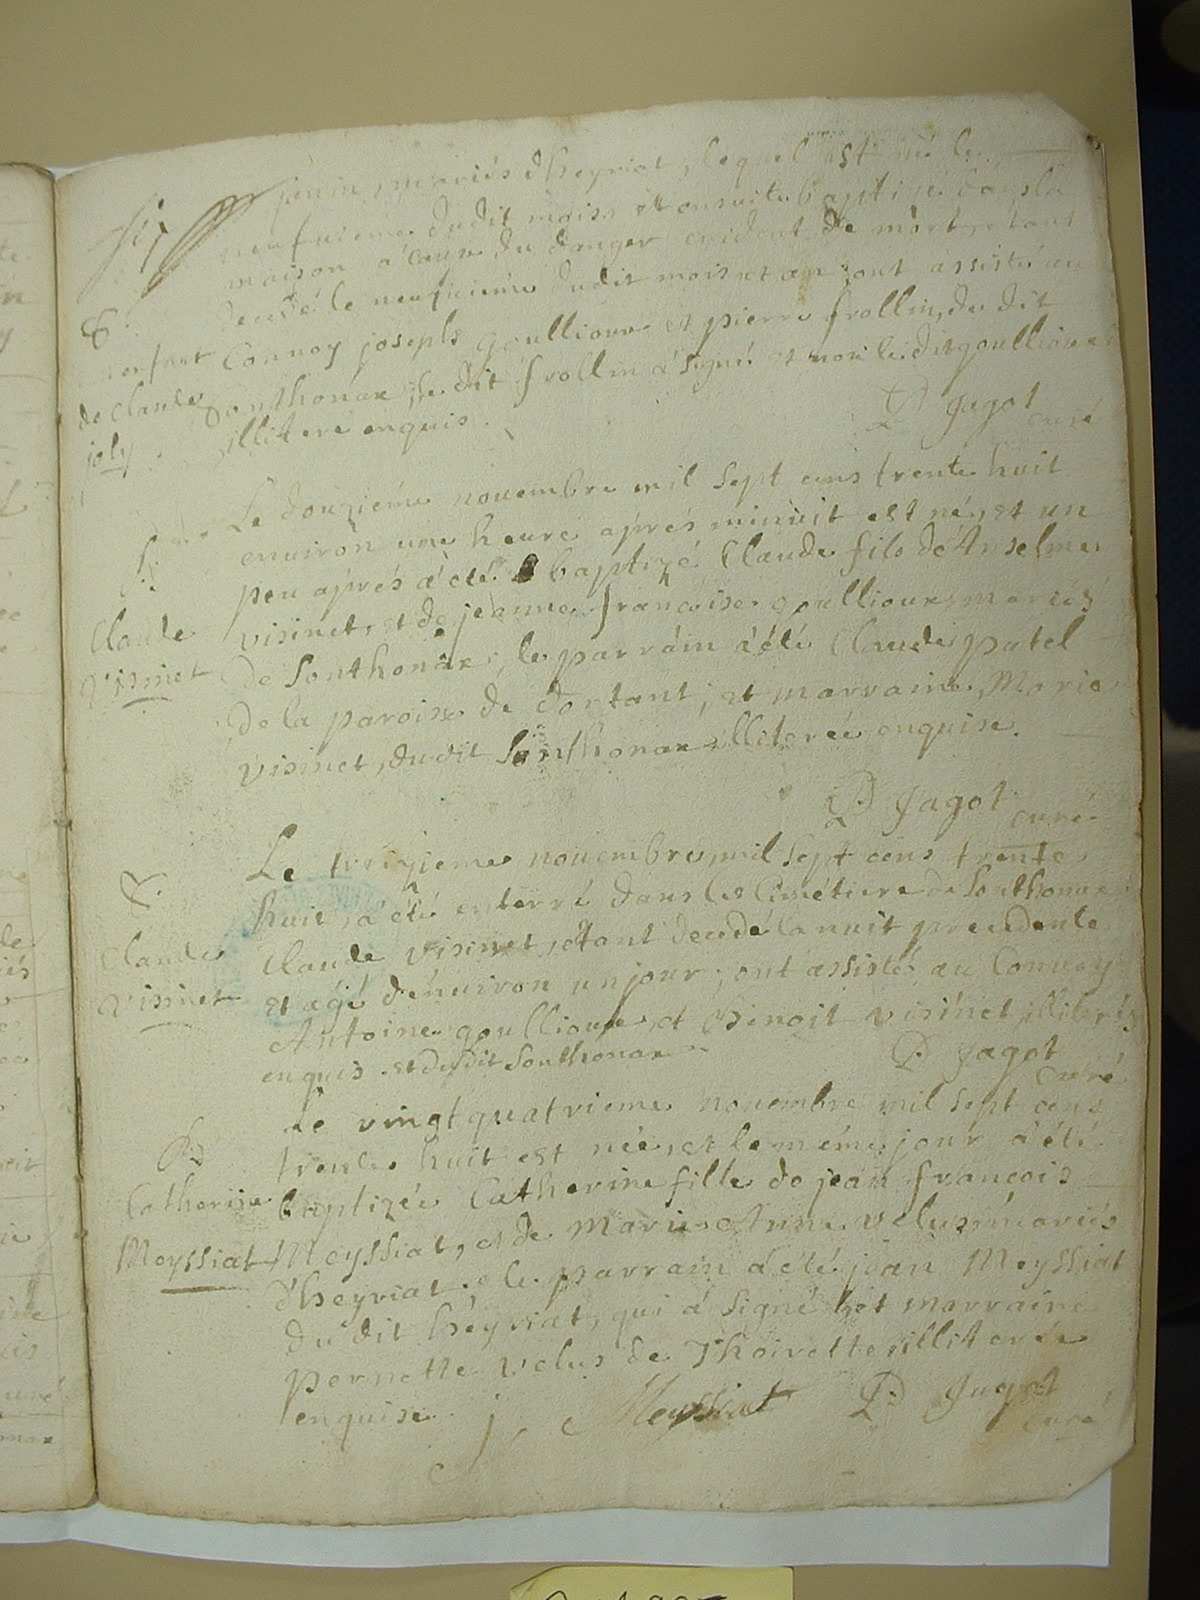 janin, mariés d'heyriat, lequel est né le
neufuieme dudit mois et ensuite baptizé dans la
maison a cause du danger evident de mort, etant
decedé le neufuieme dudit mois et an, ont assisté au
Convoy joseph goullioux et pierre frollin, du dit
Sonthonax, le dit frollin a signé et non le dit goullioux
illiteré enquis.
D Jagot curé
enfant
de Claude
joly
Le douzième nouembre mil sept cens trente huit
enuiron une heure aprés minuit est né, et un
peu aprés a été baptizé Claude fils d'Anselme
visinet, et de jeanne françoise goullioux mariés
de Sonthonax, le parrain a été Claude patel
de la paroisse de dortant, et marraine, Marie
visinet, dudit Sonthonax illiterée enquise.
D Jagot curé
B.
Claude
Visinet
Le treizieme nouembre mil sept cens trente
huit, a été enterré dans le Cimétiere de Sonthonax
Claude visinet, étant decedé la nuit precedente
et agé d'énuiron un jour, ont assistés au Conuoy
Antoine goullioux, et Benoit visinet, illiterés
enquis, et dudit Sonthonax
D Jagot curé
Claude
Visinet
Le vingt quatrieme nouembre mil sept cens
trente huit est née, et le méme jour a été
baptizée Catherine fille de jean françois
Meyssiat, et de Marie Anne Velus mariés
d'heyriat, le parrain a été jean Meyssiat
du dit héyriat, qui a signé et marraine
Pernette Velus de Thoirette illiterée
enquise. j. Meyssiat D Jagot curé
B.
Catherine
Meyssiat